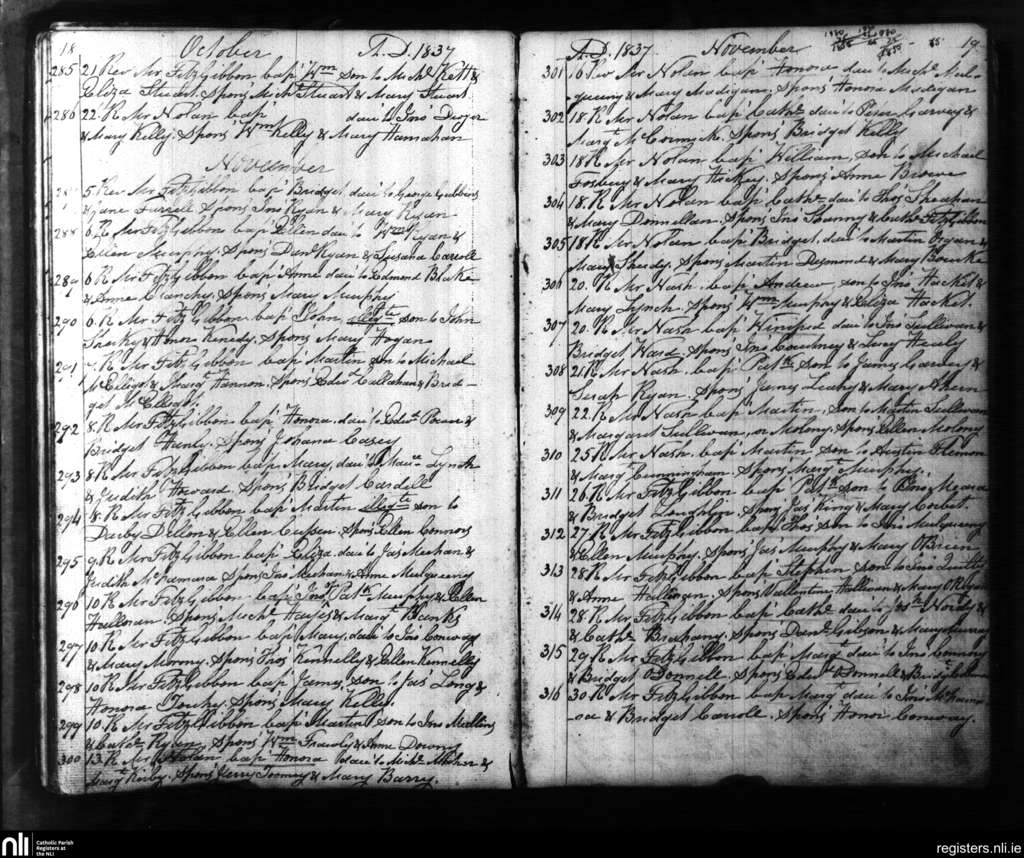 18 October A.D. 1837
285 21 Rev Mr FitzGibbon bapd Wm son to Michl Kett &
Eliza Stuart. Spons Michl Stuart & Mary Stuart
286 22d R Mr Nolan bapd daur to Jno Dwyer
& Mary Kelly. Spons Wm Kelly & Mary Hanrahan
November
5 Rev Mr FitzGibbon bapd Bridget daur to George Gubbins
& Jane Farrell Spons Jno Ryan & Mary Ryan
288 6 R Mr FitzGibbon bapd Ellen daur to Wm Ryan &
Ellen Murphy. Spons Danl Ryan & Susana Carroll
289 6 R Mr FitzGibbon bapd Anne daur to Edmond Blake
& Anne Clanchy. Spons Mary Murphy
290 6 R Mr FitzGibbon bapd illegte son to John
& Honor Kenedy. Spons Mary Hogan
291 R Mr FitzGibbon bapd Martin son to Michael
McElligot & Margt Hannon. Spons Edwd Callahan & Brid-
get McElligott
292 8 R Mr FitzGibbon bapd Honora, daur to Edwd &
Bridget Hanly. Spons Johana Casey
293 8 R Mr FitzGibbon bapd Mary, daur to Maure Lynch
& Judith Spons Bridget Cardell
294 8 R Mr FitzGibbon bapd Martin illegte son to
Darby Dillon & Ellen Cussen. Spons Ellen Connors
295 9 R Mr FitzGibbon bapd Eliza daur to Jas Meehan &
Judith McNamara Spons Jno Meehan & Anne Mulqueeny
296 10 R Mr FitzGibbon bapd Jno Patk Murphy & Ellen
Halloran. Spons Michl Hayes & Margt Banks
297 10 R Mr FitzGibbon bapd Mary, daur to Jno Conway
& Mary Spons Thos Kennelly & Ellen Kennelly
298 10 R Mr FitzGibbon bapd James, son to Jas Long &
Honora Spons Mary Kelly
299 10 R Mr FitzGibbon bapd Martin son to Jno Mullins
& Cathe Ryan. Spons Wm Frawly & Anne Downy
300 13 R Mr Nolan bapd Honora daur to Michl &
Margt Kirby. Spons Jerry Toomey & Mary Barry.
A.D. 1837 November 19
301 16 Rev Mr Nolan bapd Honora daur to Michl Mul-
queeny & Mary Madigan. Spons Honora Madigan
302 18 R Mr Nolan bapd Cathe daur to Peter Garvey &
Margt McCormick. Spons Bridget Kelly
303 18 R Mr Nolan bapd William, son to Michael
Fosbery & Mary Hickey. Spons Anne Browne
304 18 R Mr Nolan bapd Cathe daur to Thos Sheahan
& Mary Donnellan. Spons Jno & Cathe FitzGibbon
305 18 R Mr Nolan bapd Bridget, daur to Martin &
Mary Sheedy. Spons Martin Desmond & Mary Bourke
306 20. R Mr Nash bapd Andrew, son to Jno Hacket &
Mary Lynch. Spons Wm Murphy & Eliza Hacket.
307 20. R Mr Nash bapd Winifred daur to Jno Sullivan &
Bridget Ward. Spons Jno Courtney & Lucy Healy
308 21 R Mr Nash bapd Patk son to James Carney &
Ryan. Spons James Leahy & Mary Ahern
309 22. R Mr Nash bapd Martin, son to Martin Sullivan
& Margaret Sullivan, or Molony. Spons Ellen Molony
310 25 R Mr Nash bapd Martin son to Austin
& Margt Cunningham. Spons Margt Murphy.
311 26 R Mr FitzGibbon bapd Patk son to Meara
& Bridget Loughlin. Spons Jas King & Mary Corbet.
312 27 R Mr FitzGibbon bapd Thos son to Jno Mulqueeny
& Ellen Murphy. Spons Jas Murphy & Mary OBrien
313 28 R Mr FitzGibbon bapd Stephen son to Jno Quilty
& Anne Hallinan. Spons Vallentine Hallinan & Mary
314 28 R Mr FitzGibbon bapd Cathe daur to
& Cathe Spons Danl Gibson & Mary
315 29 R Mr FitzGibbon bapd Margt daur to Jno
& Bridget ODonnell. Spons Edwd ODonnell &
316 30 R Mr FitzGibbon bapd Marg daur to Jno McNama-
ra & Bridget Carroll. Spons Honor Conway.
nli
Catholic Parish
Registers at
the NLI
registers.nli.ie